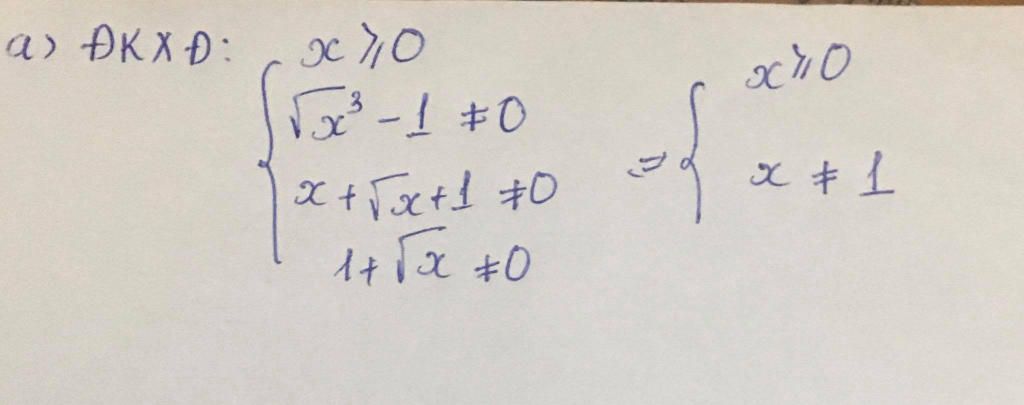 a) ĐKXĐ: { x ⩾ 0
√x³ - 1 ≠ 0
x + √x + 1 ≠ 0
1 + √x ≠ 0
=> { x ⩾ 0
x ≠ 1